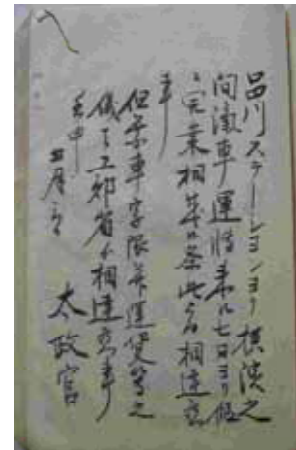 品川ステーションヨリ横浜之
間滊車運転来ル七日ヨリ仮
ニ完業相成候条此旨相達候
事
但乗車字限并運使等之
儀ハ工部省ゟ相達候事
壬申
四月
太政官